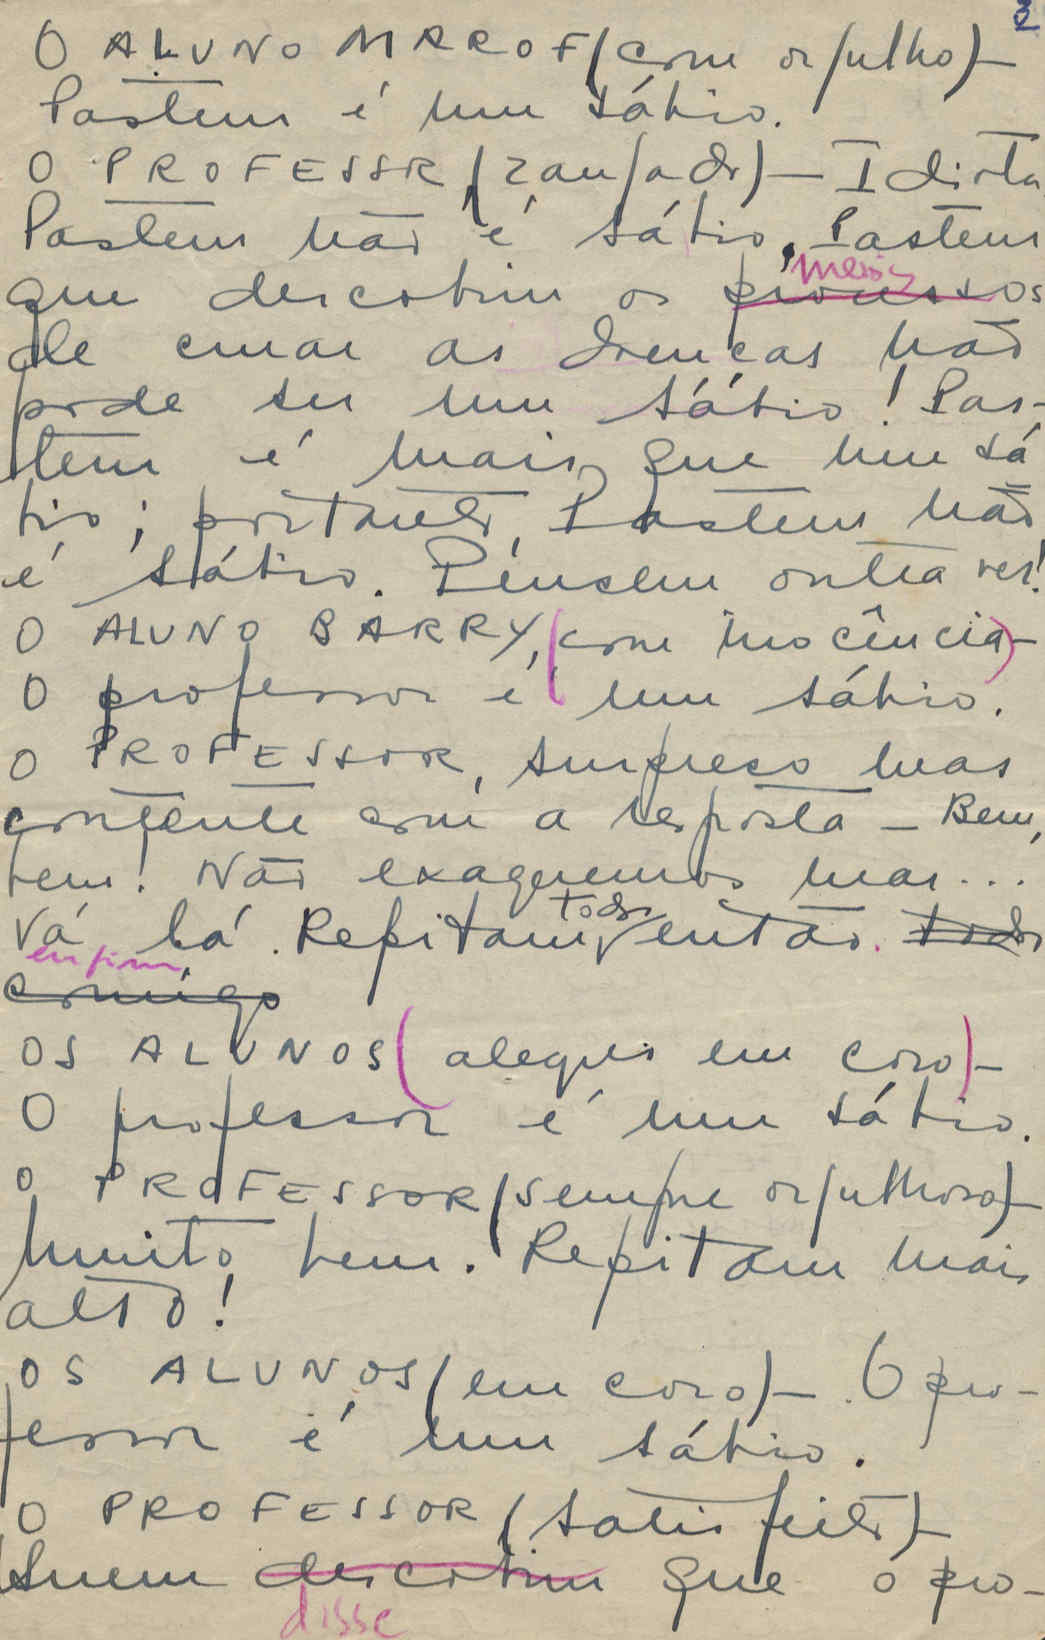 2
O ALUNO MAROF (com orgulho) –
Pasteur é um sábio.
O PROFESSR (zangado) – Idiota
Pasteur não é sábio, Pasteur
que descobriu os meios processos
de curar as doenças não
pode ser um sábio! Pas-
teur é mais que um sá
bio; portanto, Pasteur não
é sábio. Pensem outra vez!
O ALUNO BARRY, (com inocência) –
O professor é um sábio.
O PROFESSOR, surpreso mas
contente com a resposta – Bem,
bem! Não exageremos mas...
Vá lá. Repitam todos então. todos
enfim
comigo
OS ALUNOS (alegres em coro) –
O professor é um sábio.
O PROFESSOR (sempre orgulhoso) –
Muito bem. Repitam mais
alto!
OS ALUNOS (em coro) – O pro-
fessor é um sábio.
O PROFESSOR (satisfeito) –
Quem descobriu que o pro-
disse